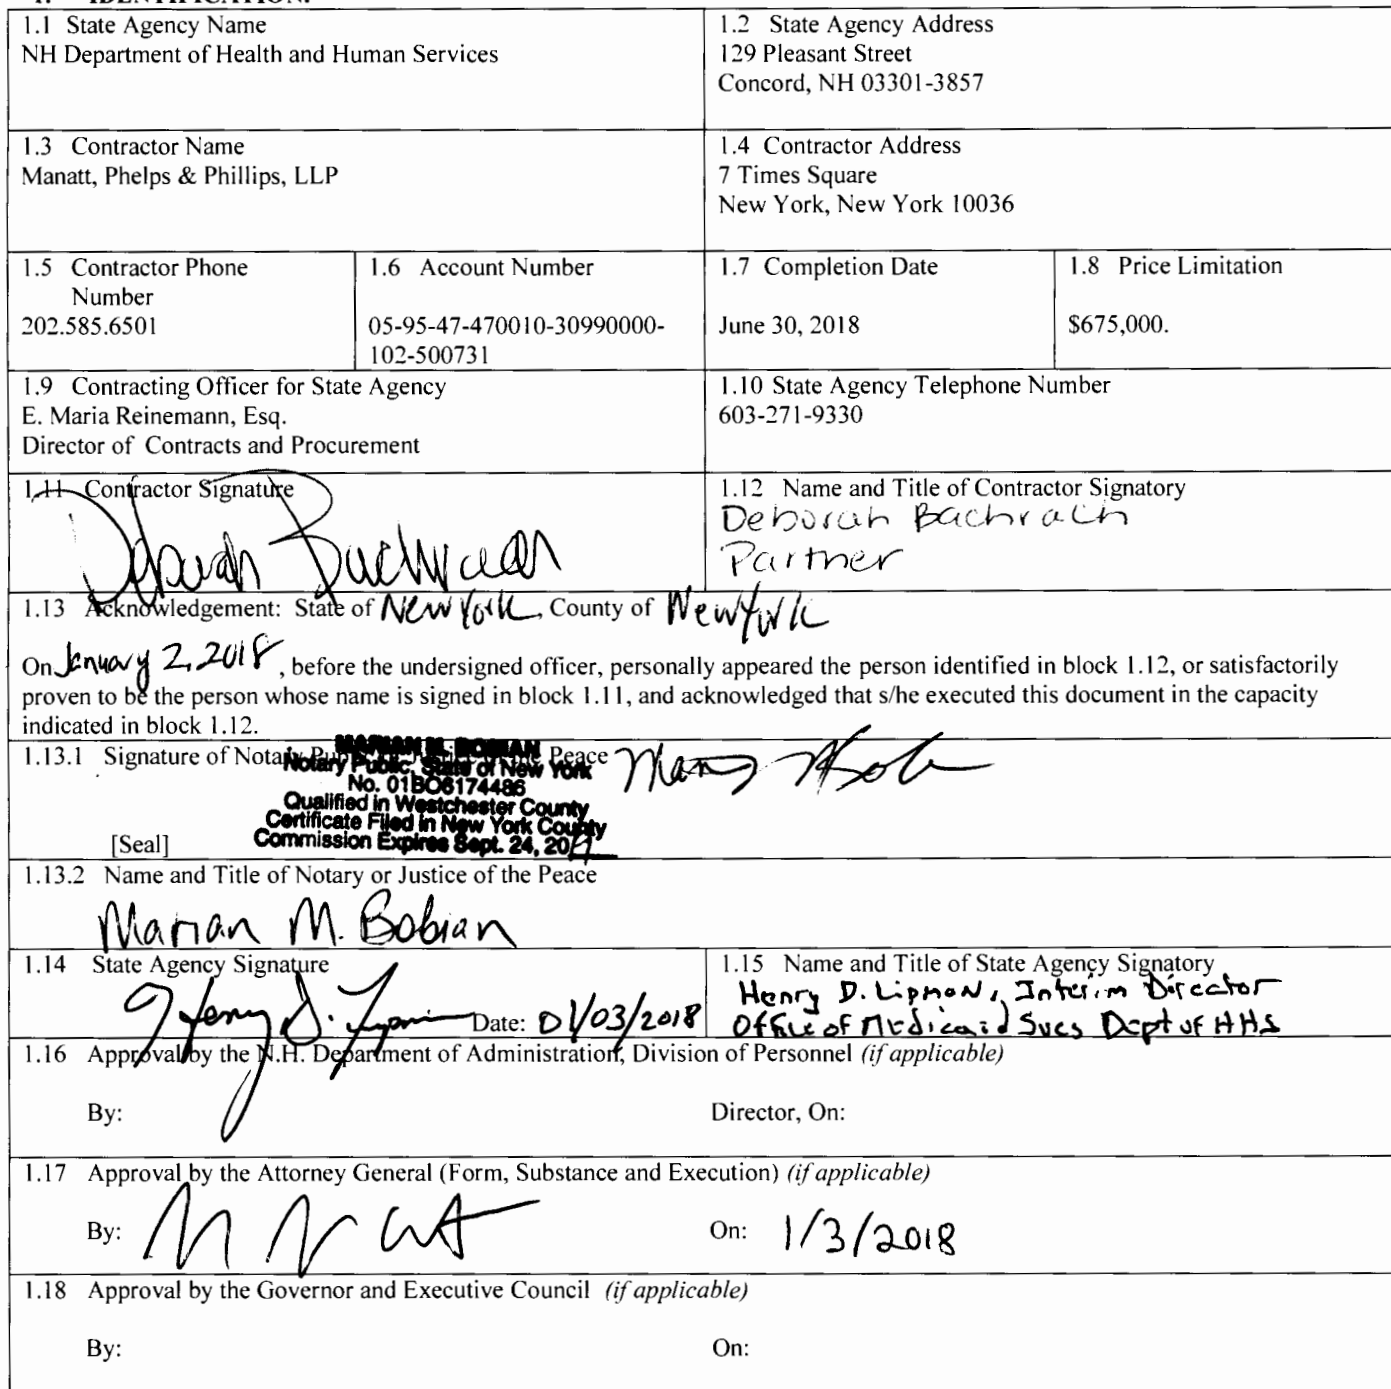 1. IDENTIFICATION.
1.1 State Agency Name
NH Department of Health and Human Services
1.2 State Agency Address
129 Pleasant Street
Concord, NH 03301-3857
1.3 Contractor Name
Manatt, Phelps & Phillips, LLP
1.4 Contractor Address
7 Times Square
New York, New York 10036
1.5 Contractor Phone
Number
202.585.6501
1.6 Account Number
05-95-47-470010-30990000-
102-500731
1.7 Completion Date
June 30, 2018
1.8 Price Limitation
$675,000.
1.9 Contracting Officer for State Agency
E. Maria Reinemann, Esq.
Director of Contracts and Procurement
1.10 State Agency Telephone Number
603-271-9330
1.11 Contractor Signature
Deborah Bachrach
1.12 Name and Title of Contractor Signatory
Deborah Bachrach
Partner
1.13 Acknowledgement: State of New York, County of New York
On January 2, 2018, before the undersigned officer, personally appeared the person identified in block 1.12, or satisfactorily
proven to be the person whose name is signed in block 1.11, and acknowledged that s/he executed this document in the capacity
indicated in block 1.12.
1.13.1 Signature of Notary Public or Justice of the Peace
MARIAN M. BOBIAN
Notary Public, State of New York
No. 01BO6174486
Qualified in Westchester County
Certificate Filed in New York County
Commission Expires Sept. 24, 20
[Seal]
1.13.2 Name and Title of Notary or Justice of the Peace
Marian M. Bobian
1.14 State Agency Signature
Henry D. Lipman Date: 01/03/2018
1.15 Name and Title of State Agency Signatory
Henry D. Lipman, Interim Director
Office of Medicaid Svcs Dept of HHS
1.16 Approval by the N.H. Department of Administration, Division of Personnel (if applicable)
By: Director, On:
1.17 Approval by the Attorney General (Form, Substance and Execution) (if applicable)
By: On: 1/3/2018
1.18 Approval by the Governor and Executive Council (if applicable)
By: On: